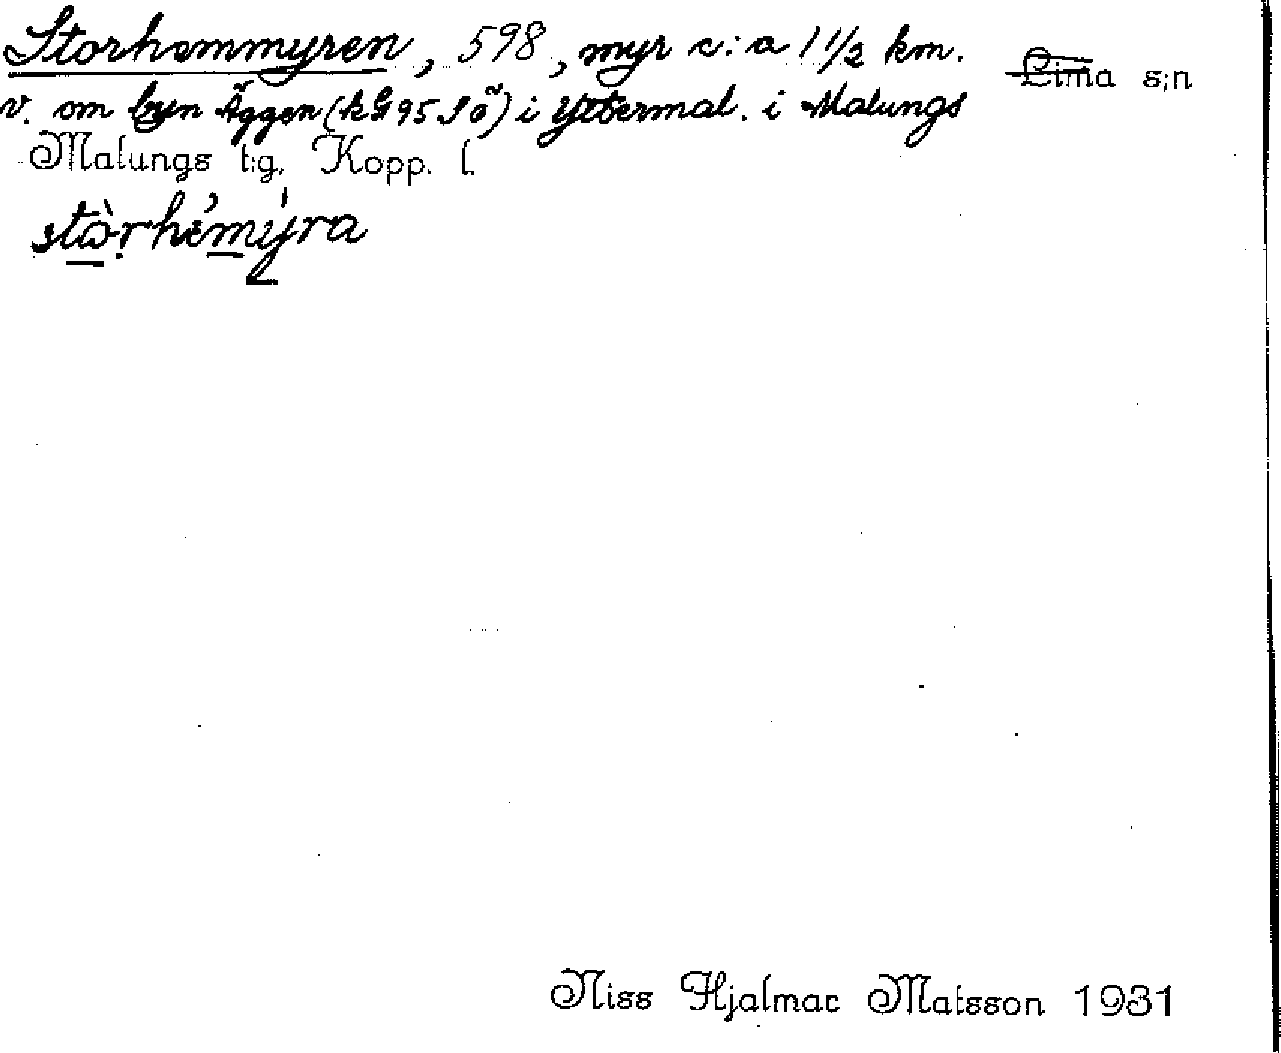 Storhemmyren, 598, myr c:a 1 1/2 km. Lima s;n
v. om byn Äggen (kG 95 Sö) i Yttermal. i Malungs
Malungs t:g, Kopp. l.
stòrhémýra
Niss Hjalmar Matsson 1931